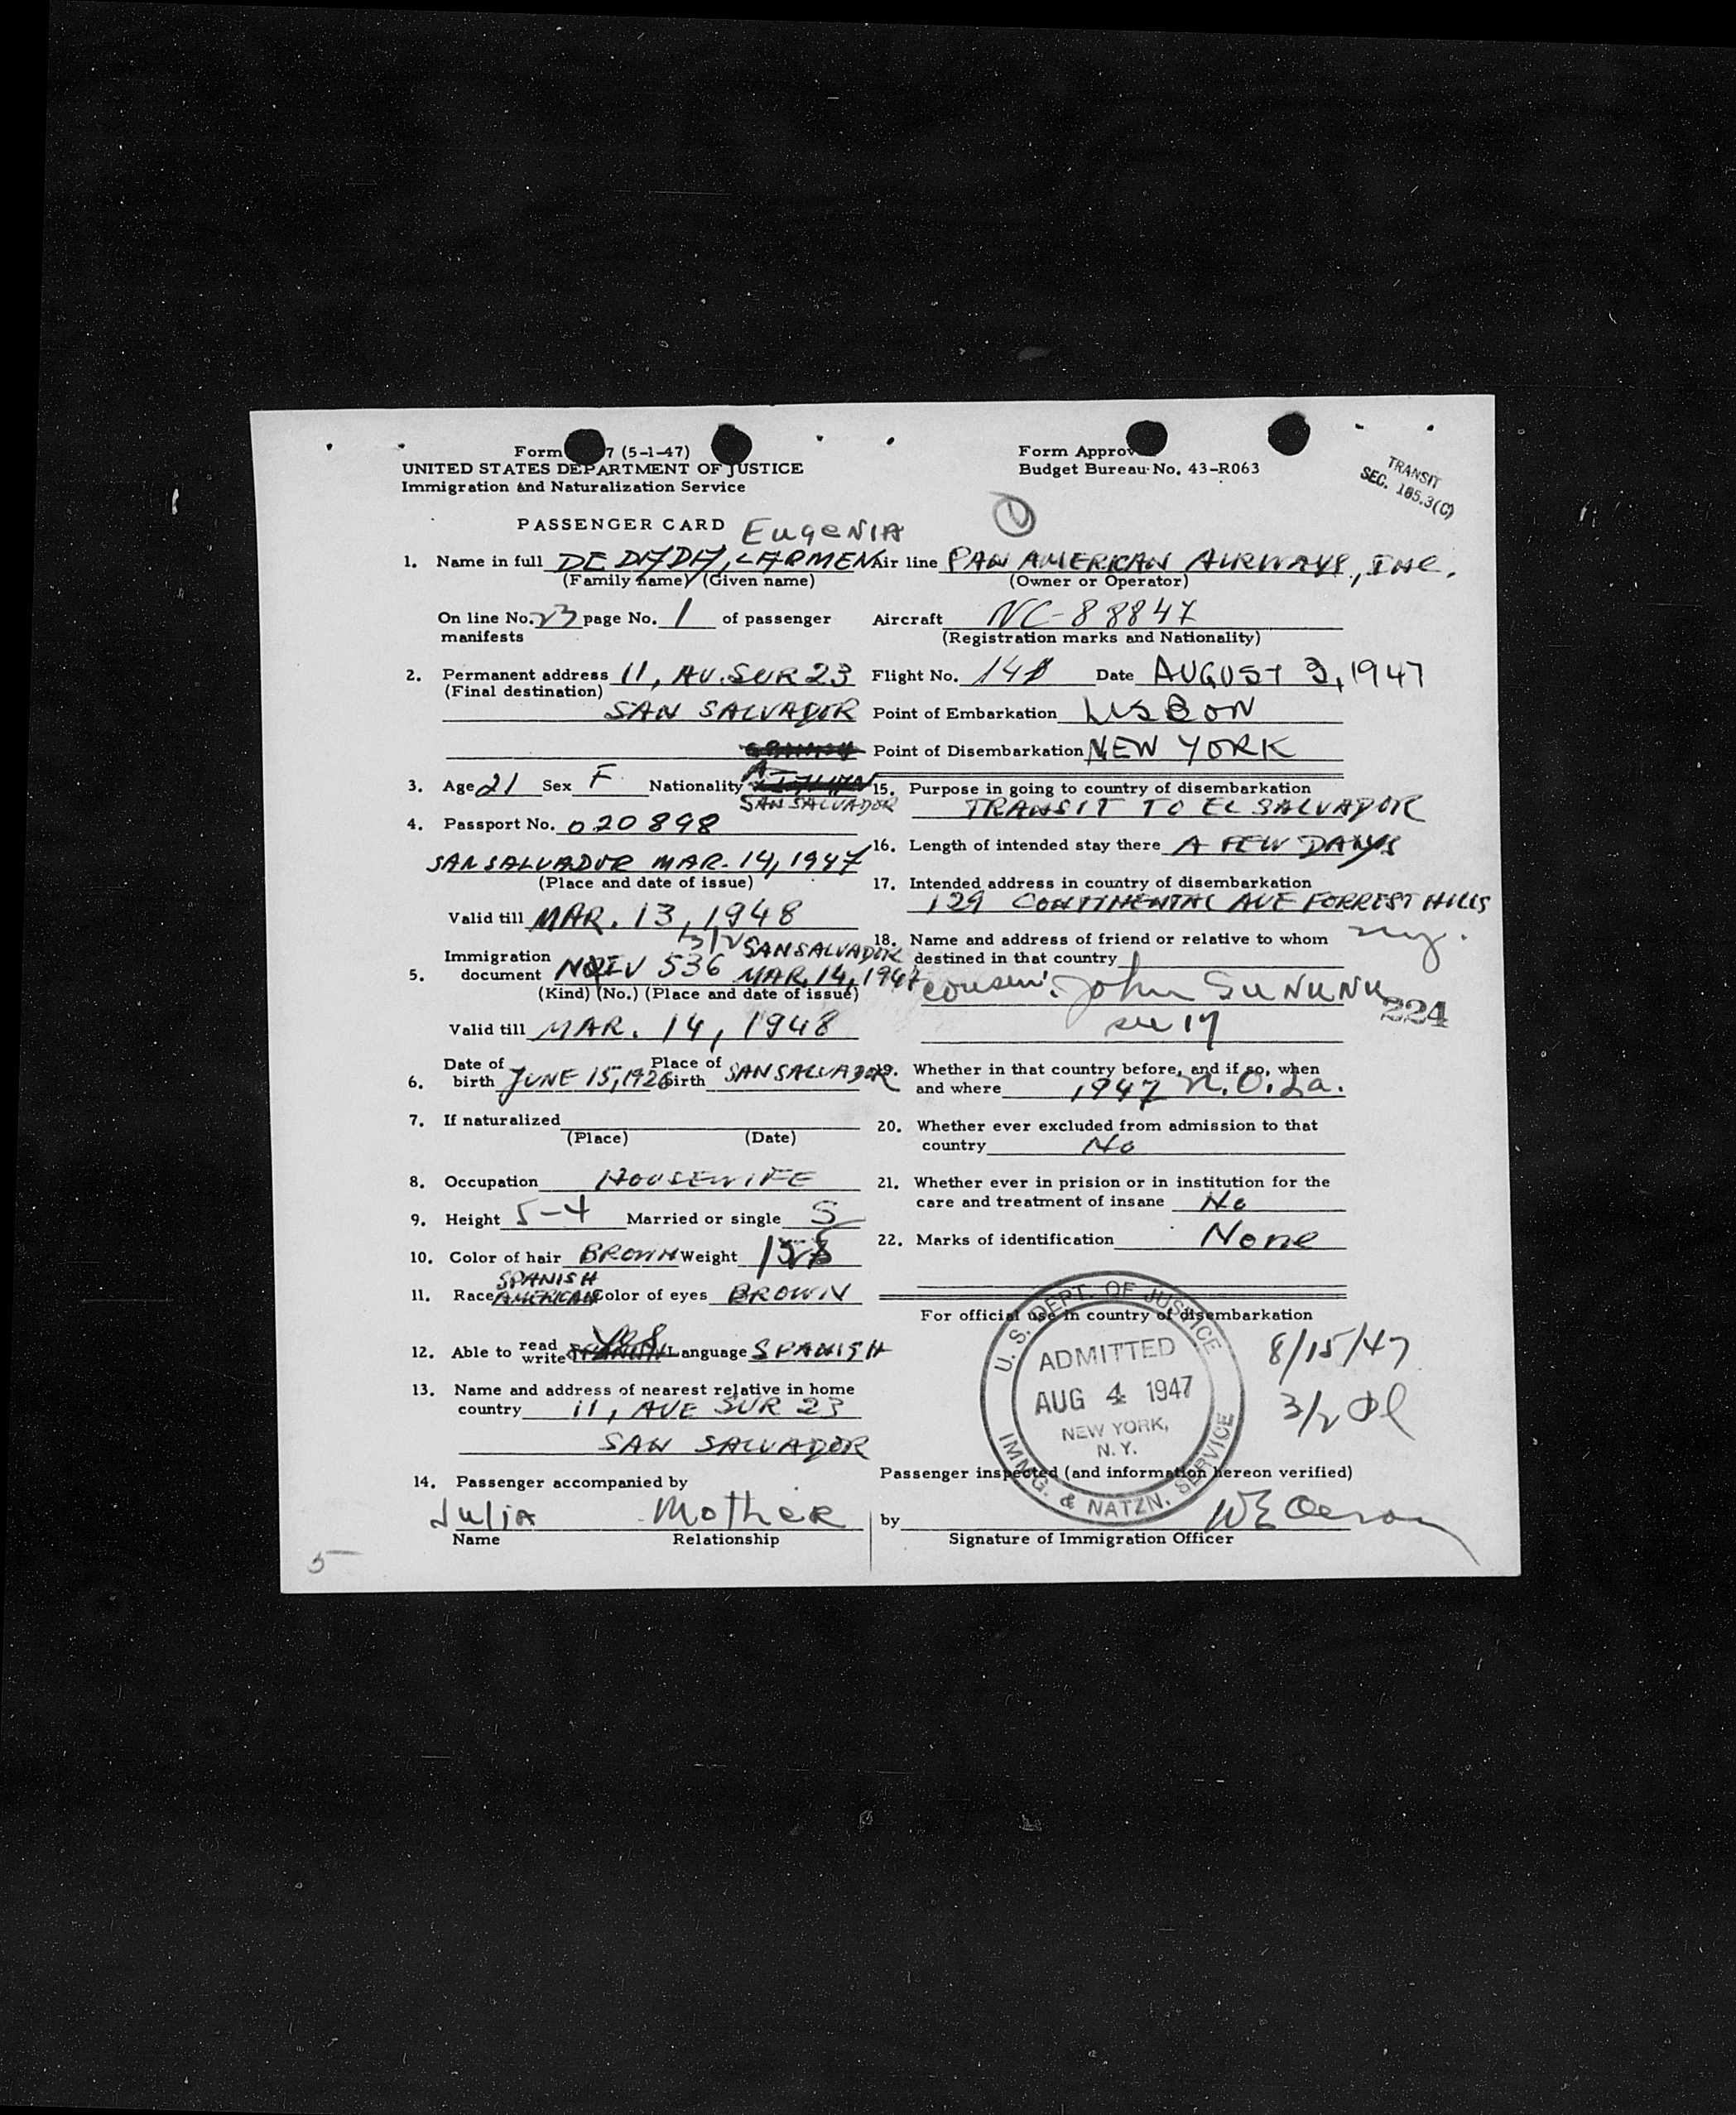 Form 7 (5-1-47)
UNITED STATES DEPARTMENT OF JUSTICE
Immigration and Naturalization Service
Form Approv
Budget Bureau No. 43-R063
TRANSIT
SEC. 165.3(C)
PASSENGER CARD EugeNIA
1
1. Name in full DE DADA, CARMEN
(Family name) (Given name)
On line No. 23 page No. 1 of passenger
manifests
2. Permanent address 11, AV. SUR 23
(Final destination)
SAN SALVADOR
3. Age 21 Sex F. Nationality
SAN SALVADOR
4. Passport No. 020898
SAN SALVADOR MAR. 14, 1947
(Place and date of issue)
Valid till MAR. 13, 1948
3/2 SAN SALVADOR
Immigration
5. document 536 MAR. 14, 1947
(Kind) (No.) (Place and date of issue)
Valid till MAR. 14, 1948
6. Date of birth JUNE 15, 1926 Place of birth SAN SALVADOR
7. If naturalized
(Place) (Date)
8. Occupation HOUSEWIFE
9. Height 5-4 Married or single S
10. Color of hair BROWN Weight
SPANISH
11. Race AMERICAN Color of eyes BROWN
12. Able to read write Yes Language SPANISH
13. Name and address of nearest relative in home
country 11, AVE SUR 23
SAN SALVADOR
14. Passenger accompanied by
Julia Mother
Name Relationship
5
Air line PAN AMERICAN AIRWAYS, INC.
(Owner or Operator)
Aircraft NC-88847
(Registration marks and Nationality)
Flight No. Date AUGUST 3, 1947
Point of Embarkation LISBON
Point of Disembarkation NEW YORK
15. Purpose in going to country of disembarkation
TRANSIT TO EL SALVADOR
16. Length of intended stay there A FEW DAYS
17. Intended address in country of disembarkation
129 CONTINENTAL AVE FORREST HILLS
ny.
18. Name and address of friend or relative to whom
destined in that country
cousin: John SuNuNu
224
see 17
19. Whether in that country before, and if so, when
and where 1947 N.O. La.
20. Whether ever excluded from admission to that
country No
21. Whether ever in prision or in institution for the
care and treatment of insane No
22. Marks of identification None
For official use in country of disembarkation
U. S. DEPT. OF JUSTICE
ADMITTED
AUG 4 1947
NEW YORK,
N. Y.
IMMG. & NATZN. SERVICE
8/15/47
3/2
Passenger inspected (and information hereon verified)
by
Signature of Immigration Officer